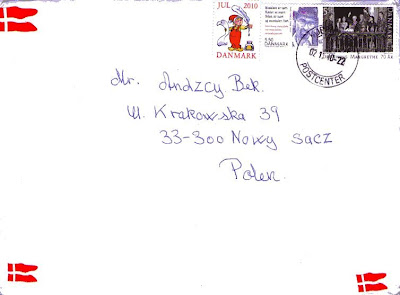 JUL 2010
DANMARK
5.50
DANMARK
DANMARK
MARGRETHE 70 ÅR
POSTCENTER
Mr. Andzcy Bek.
Ul. Krakowska 39
33-300 Nowy Sacz
Polen.